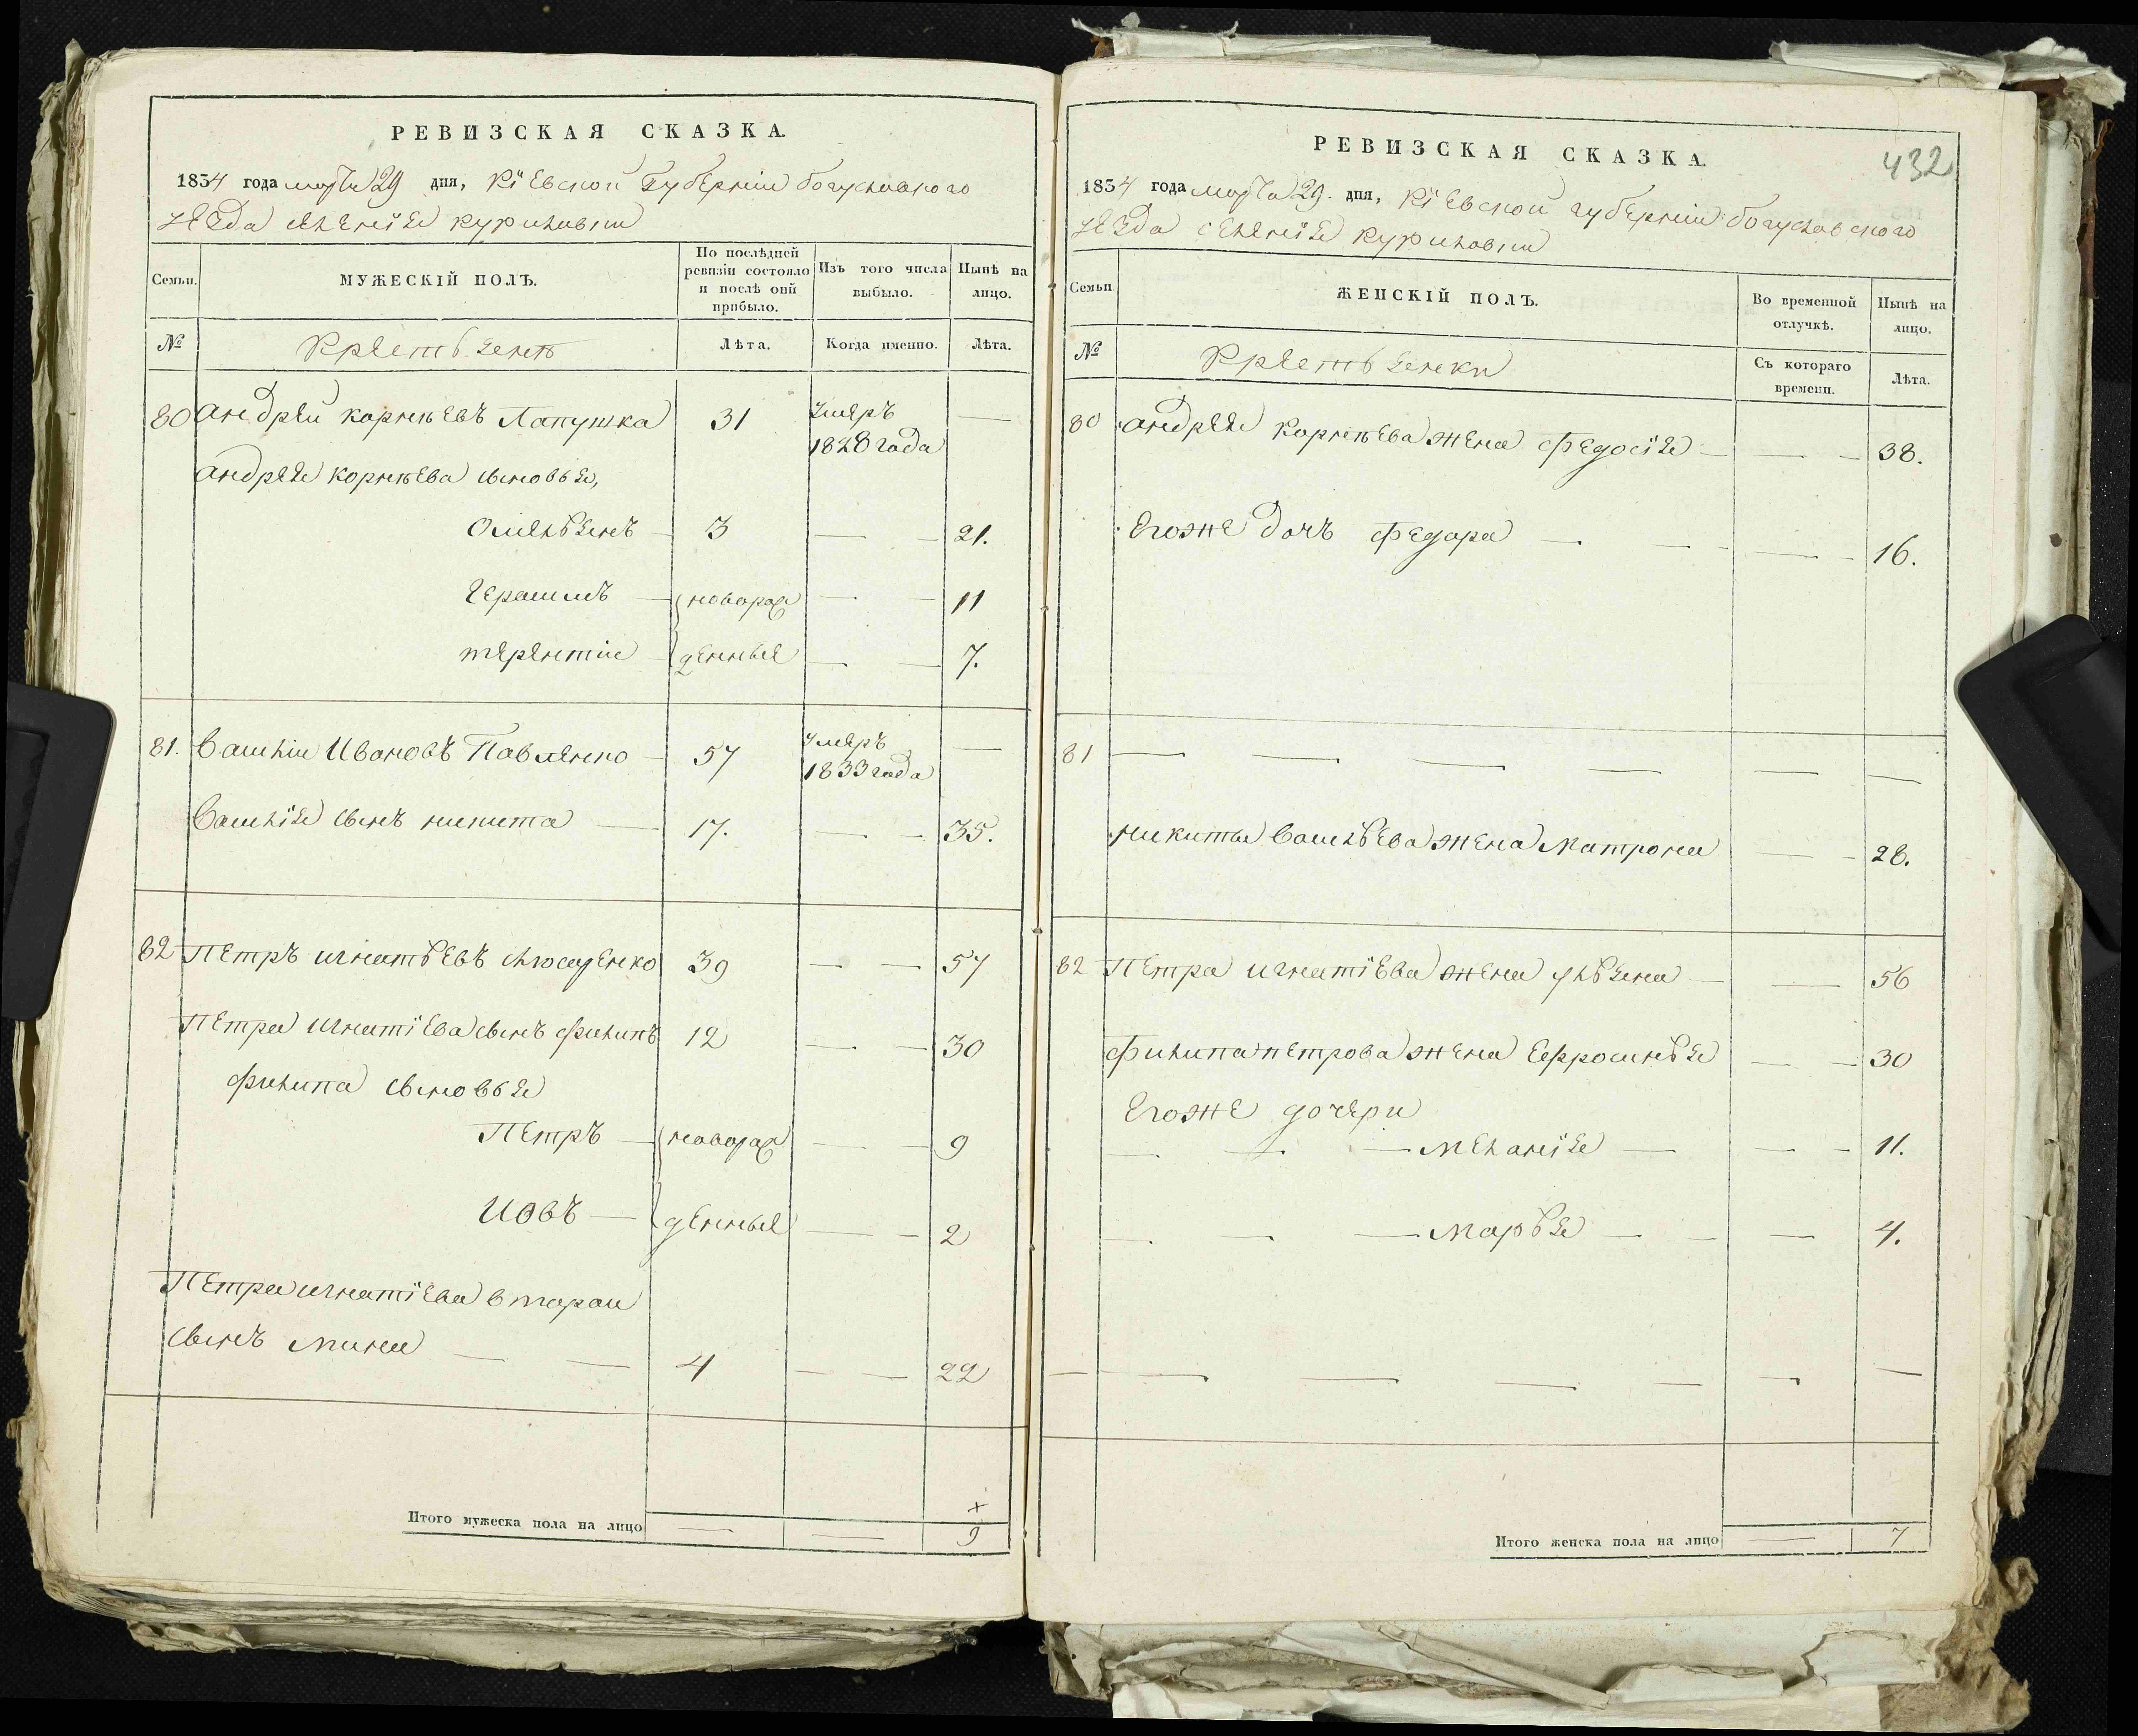 РЕВИЗСКАЯ СКАЗКА.
1834 года марта 29 дня, Кіевской Губерніи богуславского
уезда селенія куриловки
Семьи.
МУЖЕСКІЙ ПОЛЪ.
По послѣдней ревизіи состояло и послѣ оній прибыло.
Изъ того числа выбыло.
Нынѣ на лицо.
№
Крестьяне
Лѣта.
Когда именно.
Лѣта.
80 андрей корнѣевъ Лапушка 31 умеръ 1828 года —
андрея корнѣева сыновья,
Омельянъ — 3 — — 21.
Герасимъ — новорож — — 11
терентіи денные — — 7.
81. Василіи Ивановъ Павленко — 57 умеръ 1833 года —
Василія сынъ никита — 17. — — 35.
82 Петръ игнатьевъ 39 — — 57
Петра игнатіева сынъ филипъ 12 — — 30
филипа сыновья
Петръ — новорож — — 9
Иовъ — денные — — 2
Петра игнатіева второи
сынъ мина — — 4 — — 22
Итого мужеска пола на лицо — — 9
432
РЕВИЗСКАЯ СКАЗКА.
1834 года марта 29. дня, Кіевской губерніи богуславского
уезда селенія куриловки
Семьи
ЖЕНСКІЙ ПОЛЪ.
Во временной отлучкѣ.
Нынѣ на лицо.
№
Крестьянки
Съ котораго времени.
Лѣта.
80 андрея корнѣева жена федосія — — — 38.
Егоже дочъ федора — — — — 16.
81 — — — — — —
никиты васильева жена Матрона — — 28.
82 Петра игнатіева жена ульяна — — 56
филипа петрова жена Ефросинья — — 30
Егоже дочери
— — — Меланія — — — 11.
— — — Марья — — — 4.
— — — — — — —
Итого женска пола на лицо — 7